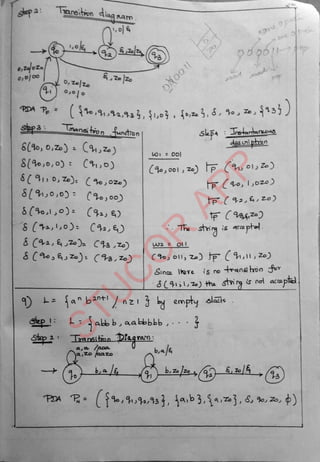 Step 2: Transition diagram:
1,0/ε
1,0/ε ε,z0/z0
q0 q2 q3
0,z0/0z0
0,0/00
0,z0/z0
0,0/0
ε,z0/z0
q1
PDA Pe = ({q0,q1,q2,q3},{1,0},{0,z0},δ,q0,z0,{q3})
Step 3: Transition function
δ(q0,0,z0) = (q1,z0)
δ(q0,0,0) = (q1,0)
δ(q1,0,z0) = (q0,0z0)
δ(q1,0,0) = (q0,00)
δ(q0,1,0) = (q2,ε)
δ(q2,1,0) = (q2,ε)
δ(q2,ε,z0) = (q3,z0)
δ(q0,ε,z0) = (q3,z0)
Step 4: Instantaneous
description
w1 = 001
(q0,001,z0) ⊢ (q1,01,z0)
⊢ (q0,1,0z0)
⊢ (q2,ε,z0)
⊢ (q3,ε,z0)
∴ The string is accepted.
w2 = 011
(q0,011,z0) ⊢ (q1,11,z0)
Since there is no transition for
δ(q1,1,z0) the string is not accepted.
STUCOR APP
9) L = {a^n b^2n+1 / n≥1} by empty stack.
Step 1: L = {abbb, aabbbbb, ...}
Step 2: Transition Diagram:
a,a/aaa
a,z0/aaz0
b,a/ε
q0 b,a/ε q1 b,z0/z0 q2 ε,z0/ε q3
PDA Pe = ({q0,q1,q2,q3},{a,b},{a,z0},δ,q0,z0,ϕ)